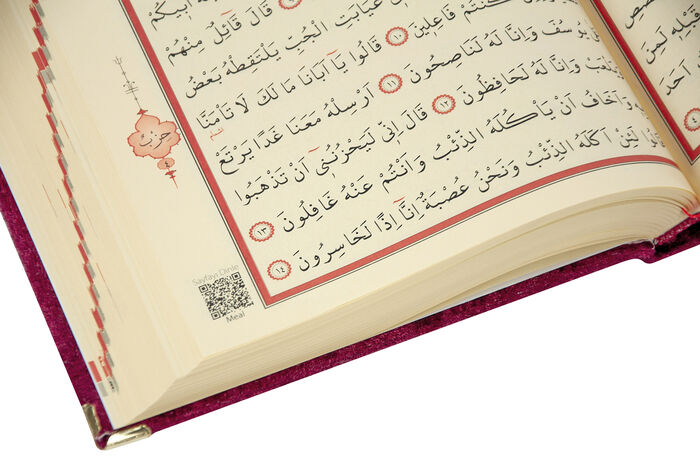 اَبِيكُمْ
قَالَ قَآئِلٌ مِنْهُمْ
غَيَابَتِ الْجُبِّ يَلْتَقِطْهُ بَعْضُ
كُنْتُمْ فَاعِلِينَ ١٠ قَالُوا يَآ اَبَانَا مَا لَكَ لَا تَأْمَنَّا
يُوسُفَ وَاِنَّا لَهُ لَنَاصِحُونَ ١١ اَرْسِلْهُ مَعَنَا غَدًا يَرْتَعْ
وَاِنَّا لَهُ لَحَافِظُونَ ١٢ قَالَ اِنِّي لَيَحْزُنُنِيٓ اَنْ تَذْهَبُوا
وَاَخَافُ اَنْ يَأْكُلَهُ الذِّئْبُ وَاَنْتُمْ عَنْهُ غَافِلُونَ ١٣
لَئِنْ اَكَلَهُ الذِّئْبُ وَنَحْنُ عُصْبَةٌ اِنَّآ اِذًا لَخَاسِرُونَ ١٤
حزب
Sayfayı Dinle
Meal
قَبْلِهِ لَمِنَ
اَحَدَ
٤